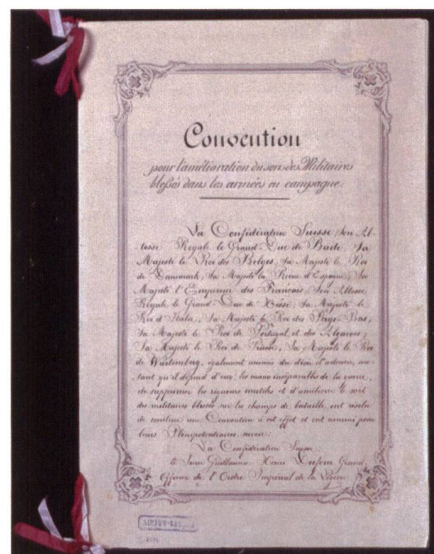 Convention
pour l'amélioration du sort des Militaires
blessés dans les armées en campagne.
La Confédération Suisse, Son Al-
tesse Royale le Grand-Duc de Bade, Sa
Majesté le Roi des Belges, Sa Majesté le Roi
de Danemark, Sa Majesté la Reine d'Espagne, Sa
Majesté l'Empereur des Français, Son Altesse
Royale le Grand-Duc de Hesse, Sa Majesté le
Roi d'Italie, Sa Majesté le Roi des Pays-Bas,
Sa Majesté le Roi de Portugal et des Algarves,
Sa Majesté le Roi de Prusse, Sa Majesté le Roi
de Würtemberg, également animés du désir d'adoucir, au-
tant qu'il dépend d'eux, les maux inséparables de la guerre,
de supprimer les rigueurs inutiles et d'améliorer le sort
des militaires blessés sur les champs de bataille, ont résolu
de conclure une Convention à cet effet et ont nommé pour
leurs Plénipotentiaires, savoir:
La Confédération Suisse:
le Sieur Guillaume Henri Dufour, Grand
Officier de l'Ordre Impérial de la